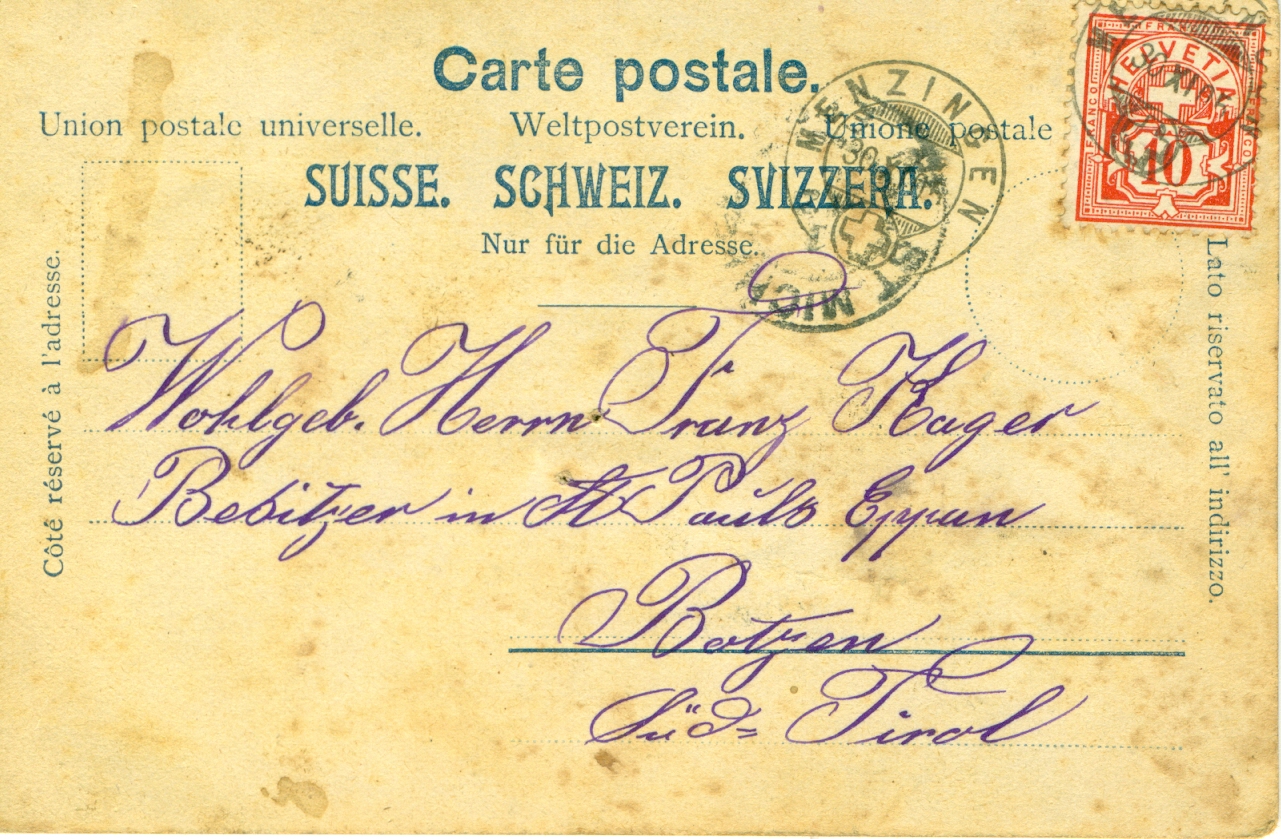 Carte postale.
Union postale universelle. Weltpostverein. Unione postale
SUISSE. SCHWEIZ. SVIZZERA.
Nur für die Adresse.
Côté réservé à l'adresse.
Lato riservato all' indirizzo.
MENZINGEN
30
ST MICH
FRANCO
HELVETIA
FRANCO
10
Wohlgeb. Herrn Franz Kager
Besitzer in St Pauls Eppan
Botzen
Süd= Tirol